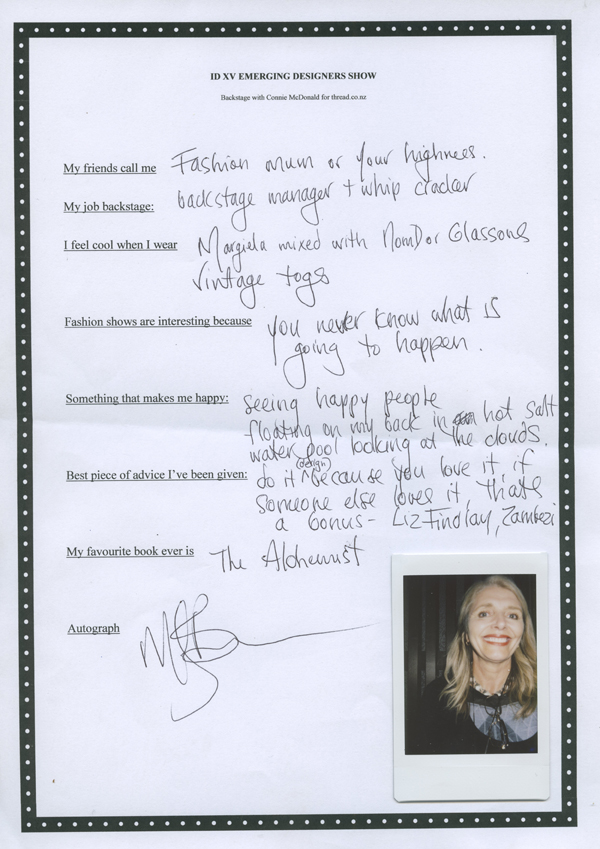 ID XV EMERGING DESIGNERS SHOW
Backstage with Connie McDonald for thread.co.nz
My friends call me Fashion mum or Your highness.
My job backstage: backstage manager + whip cracker
I feel cool when I wear Margiela mixed with NomD or Glassons
Vintage togs
Fashion shows are interesting because you never know what is
going to happen.
Something that makes me happy: Seeing happy people
floating on my back in hot salt
water pool looking at the clouds.
Best piece of advice I've been given: do it (design) because you love it, if
someone else loves it, thats
a bonus - Liz Findlay, Zambezi
My favourite book ever is The Alchemist
Autograph